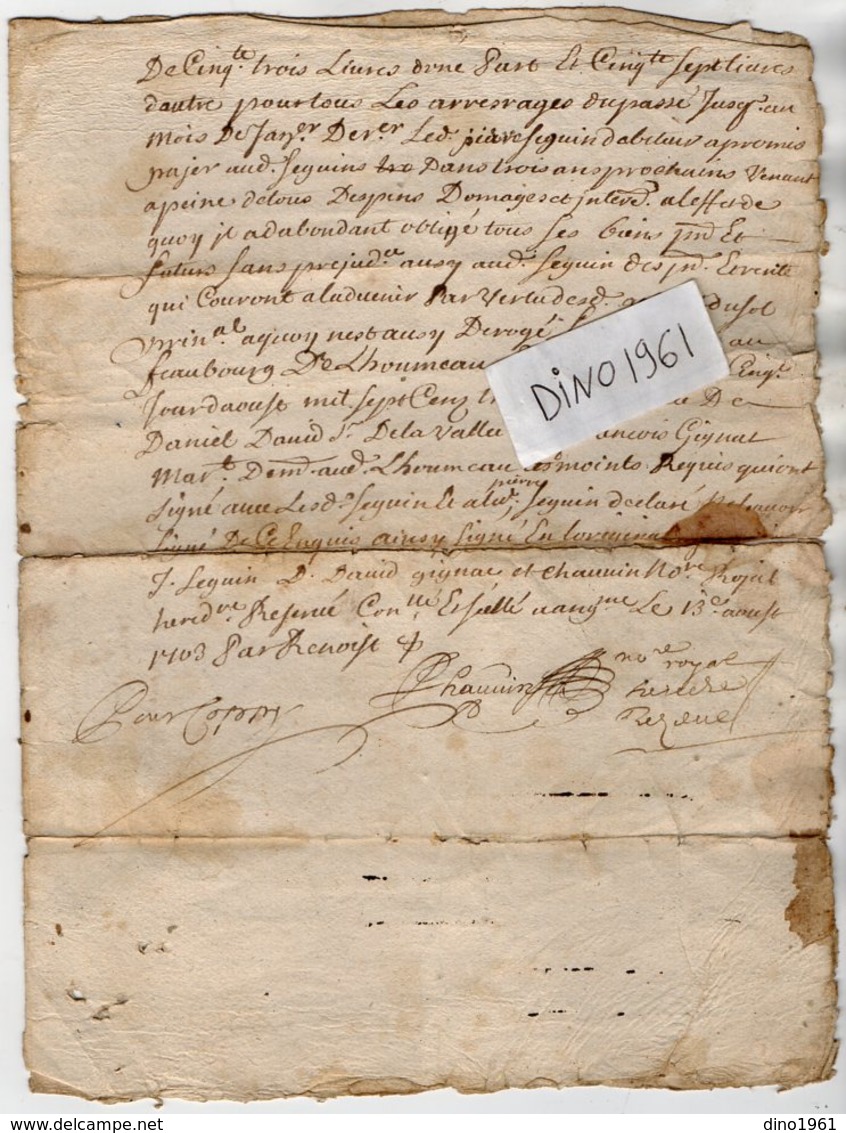 De Cinqte trois Livres dune Part Et Cinqte sept livres
dautre pour tous Les arresrages du passé Jusq. au
Mois De Janer Derer Led. pierre Seguin a promis
payer aud. Seguin Dans trois ans prochains Venant
a peine de tous Despens Domages et interd. a leffet de
quoy il a dabondant obligé tous ses biens pnd. Et
futurs sans prejude. ausy aud. Seguin des pnd. Et rente
qui Couront a laduenir Par Vertu desd. du sol
prinal aquoy nest ausy Derogé
feaubourg De Lhoumeau au Cinq.
Jour daoust mil sept Cenz De
Daniel Dauid sr. De la Vallee francois Gignac
Mart. Dem. aud. Lhoumeau tesmoints Requis qui ont
signé auec Lesd. Seguin Et a led. pierre Seguin declaré
signé De Ce Enquis ainsy signé En Loriginal
J. Seguin D. Dauid gignac et Chauuin Nore. Royal
heredre. Reserué Conllé Et sellé a angme Le 13e aoust
1703 Par Renoist
Pour Coppy
Chauuin nore royal
heredre
Rezerué
DiNO1961
dino1961